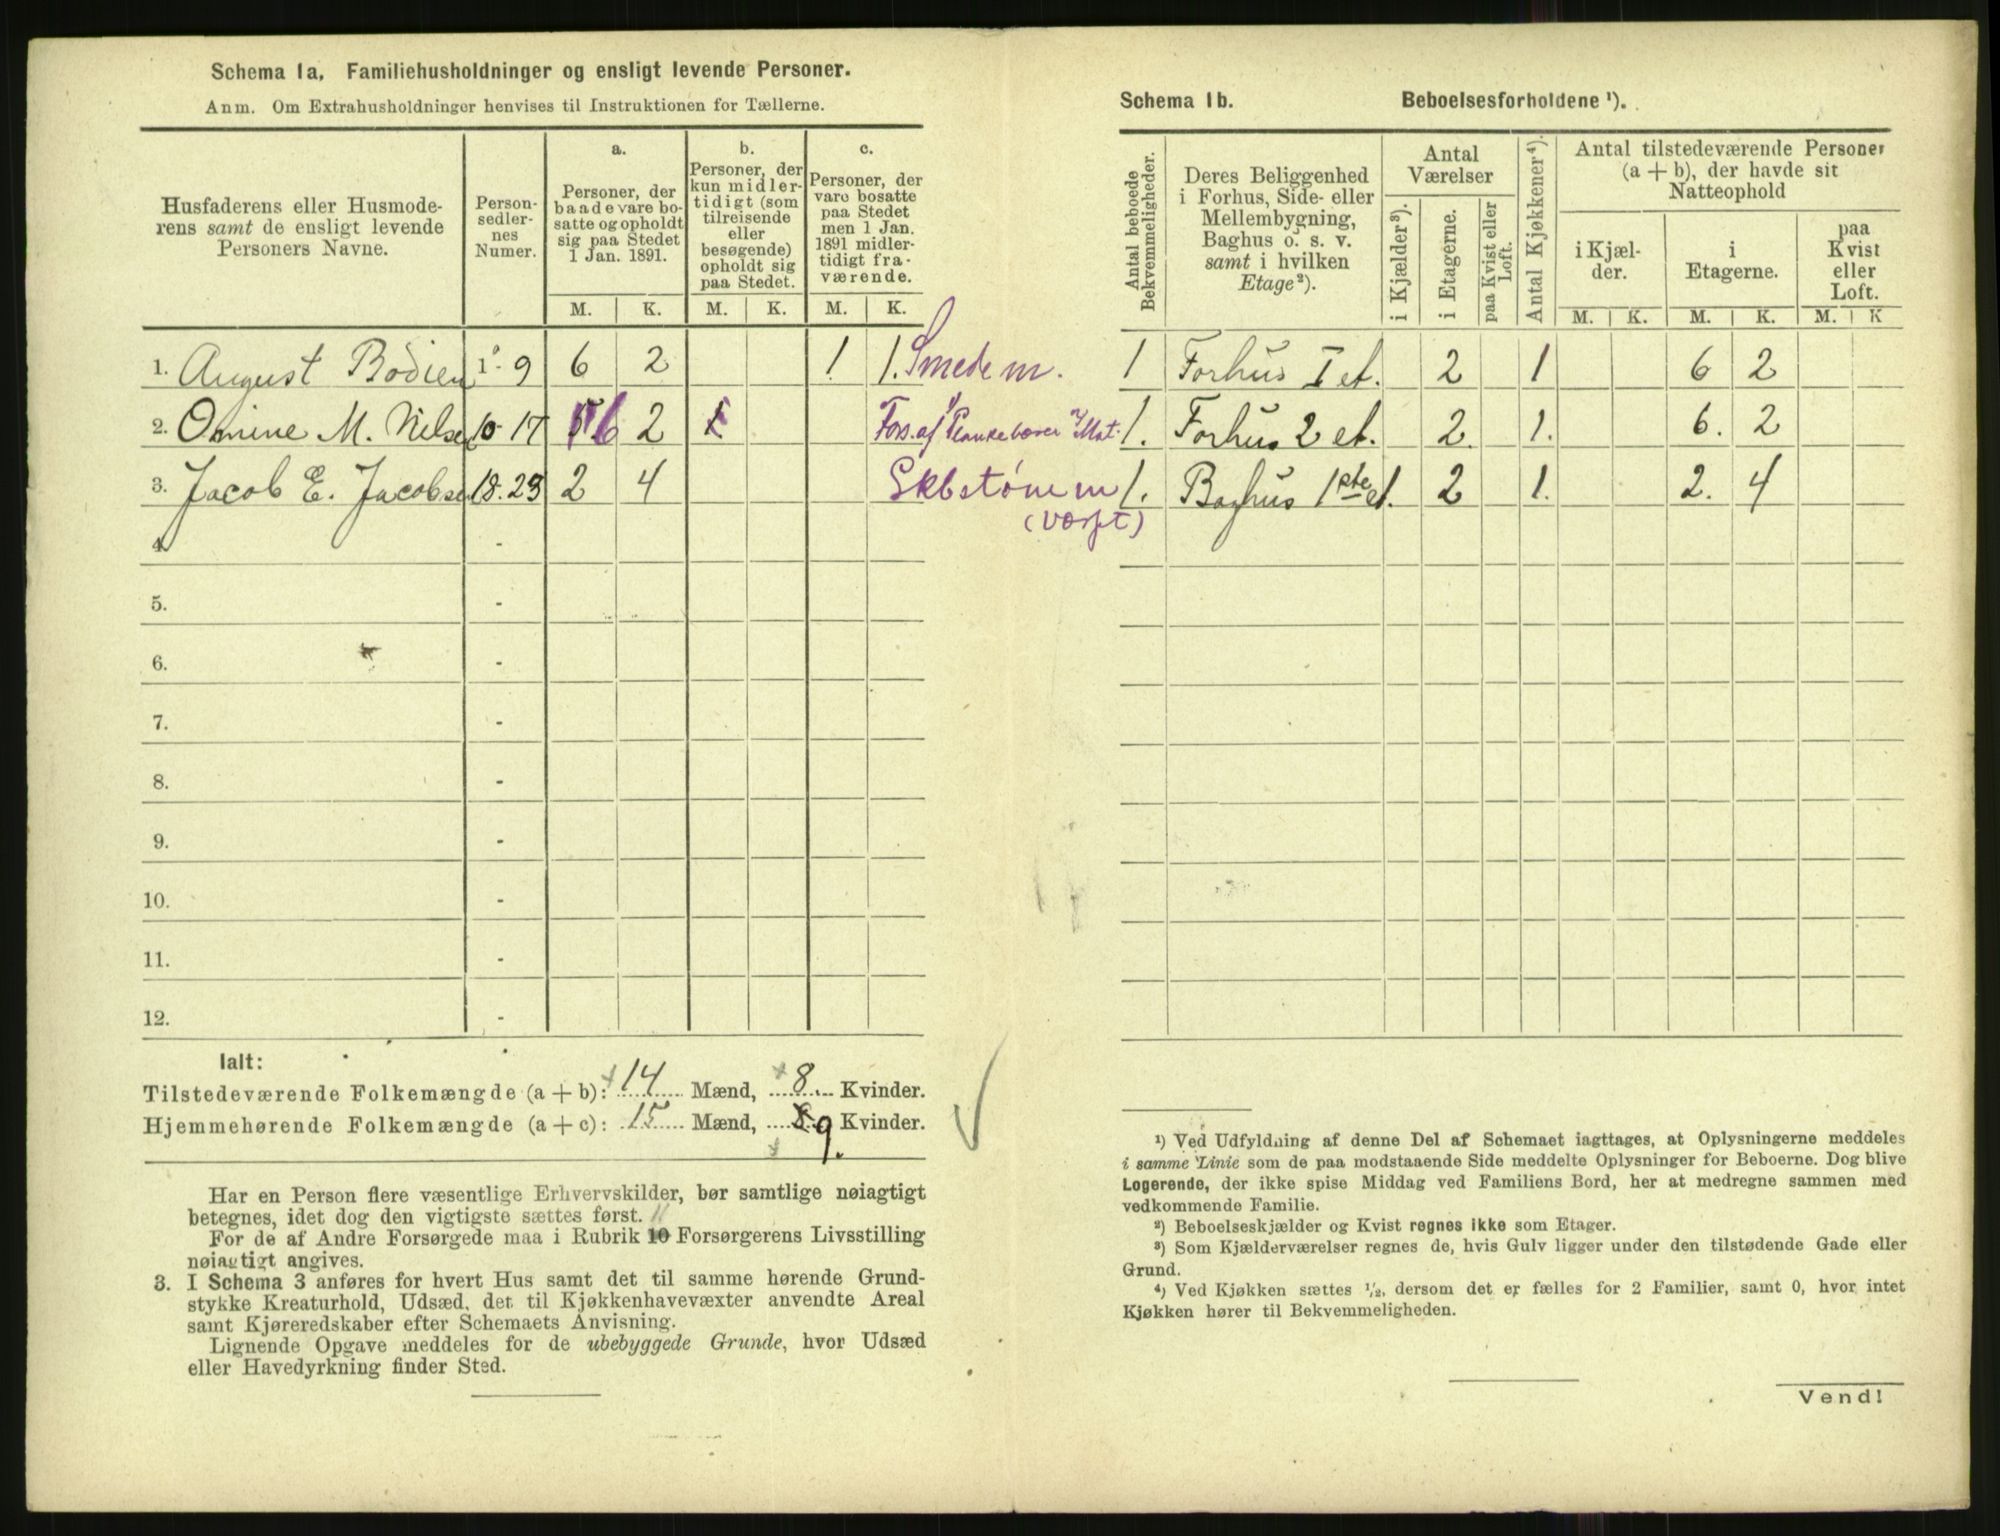 Schema 1a, Familiehusholdninger og ensligt levende Personer.
Anm. Om Extrahusholdninger henvises til Instruktionen for Tællerne.
Husfaderens eller Husmode-
rens samt de ensligt levende
Personers Navne.
Person-
sedler-
nes
Numer.
a.
Personer, der
baade vare bo-
satte og opholdt
sig paa Stedet
1 Jan. 1891.
b.
Personer, der
kun midler-
tidigt (som
tilreisende
eller
besøgende)
opholdt sig
paa Stedet.
c.
Personer, der
vare bosatte
paa Stedet
men 1 Jan.
1891 midler-
tidigt fra-
værende.
M. K. M. K. M. K.
1. August Bodien 1 - 9 6 2 1 1. Smedem.
2. Omine M. Nilse 10 - 17 6 2 1 Fors. af Plankebærer
3. Jacob E. Jacobse 18 - 23 2 4 Skbstømm
(Værft)
4. -
5. -
6. -
7. -
8. -
9. -
10. -
11. -
12. -
Ialt:
Tilstedeværende Folkemængde (a + b): 14 Mænd, 8. Kvinder.
Hjemmehørende Folkemængde (a + c): 15 Mænd, 8 9. Kvinder.
Har en Person flere væsentlige Erhvervskilder, bør samtlige nøiagtigt
betegnes, idet dog den vigtigste sættes først.
For de af Andre Forsørgede maa i Rubrik 10 Forsørgerens Livsstilling
nøiagtigt angives.
3. I Schema 3 anføres for hvert Hus samt det til samme hørende Grund-
stykke Kreaturhold, Udsæd, det til Kjøkkenhavevæxter anvendte Areal
samt Kjøreredskaber efter Schemaets Anvisning.
Lignende Opgave meddeles for de ubebyggede Grunde, hvor Udsæd
eller Havedyrkning finder Sted.
Schema 1b. Beboelsesforholdene ¹).
Antal beboede
Bekvemmeligheder.
Deres Beliggenhed
i Forhus, Side- eller
Mellembygning,
Baghus o. s. v.
samt i hvilken
Etage²).
Antal
Værelser
i Kjælder³).
i Etagerne.
paa Kvist eller
Loft.
Antal Kjøkkener⁴).
Antal tilstedeværende Personer
(a + b), der havde sit
Natteophold
i Kjæl-
der.
i
Etagerne.
paa
Kvist
eller
Loft.
M. K. M. K. M. K
1 Forhus I et. 2 1 6 2
1. Forhus 2 et. 2. 1. 6. 2
1. Baghus 1ste et. 2 1. 2. 4
¹) Ved Udfyldning af denne Del af Schemaet iagttages, at Oplysningerne meddeles
i samme Linie som de paa modstaaende Side meddelte Oplysninger for Beboerne. Dog blive
Logerende, der ikke spise Middag ved Familiens Bord, her at medregne sammen med
vedkommende Familie.
²) Beboelseskjælder og Kvist regnes ikke som Etager.
³) Som Kjælderværelser regnes de, hvis Gulv ligger under den tilstødende Gade eller
Grund.
⁴) Ved Kjøkken sættes ¹/₂, dersom det er fælles for 2 Familier, samt 0, hvor intet
Kjøkken hører til Bekvemmeligheden.
Vend!